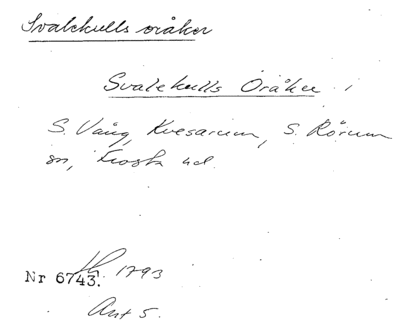 Svalekulls oråker
Svalekulls Oråker i
S. Vång, Kvesarum, S. Rörum
sn, Frosta hd.
1793
Nr 6743.
Ant 5.